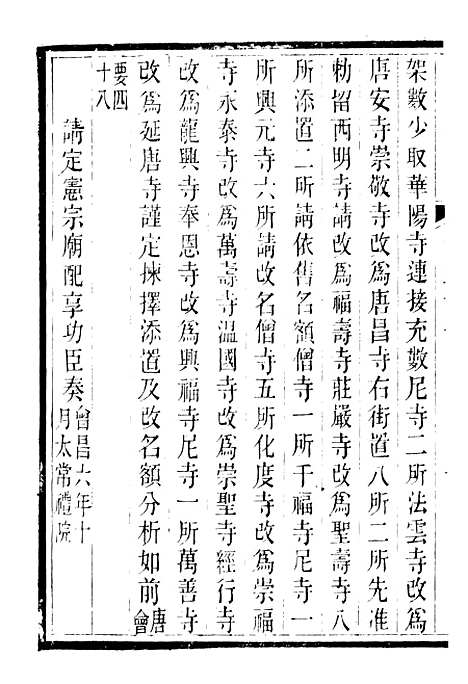 架數少取華陽寺連接充數尼寺二所法雲寺改爲
唐安寺崇敬寺改爲唐昌寺右街置八所二所先准
勅留西明寺請改爲福壽寺莊嚴寺改爲聖壽寺八
所添置二所請依舊名額僧寺一所千福寺尼寺一
所興元寺六所請改名僧寺五所化度寺改爲崇福
寺永泰寺改爲萬壽寺溫國寺改爲崇聖寺經行寺
改爲龍興寺奉恩寺改爲興福寺尼寺一所萬善寺
改爲延唐寺謹定揀擇添置及改名額分析如前唐會
要四十八
請定憲宗廟配享功臣奏會昌六年十月太常禮院